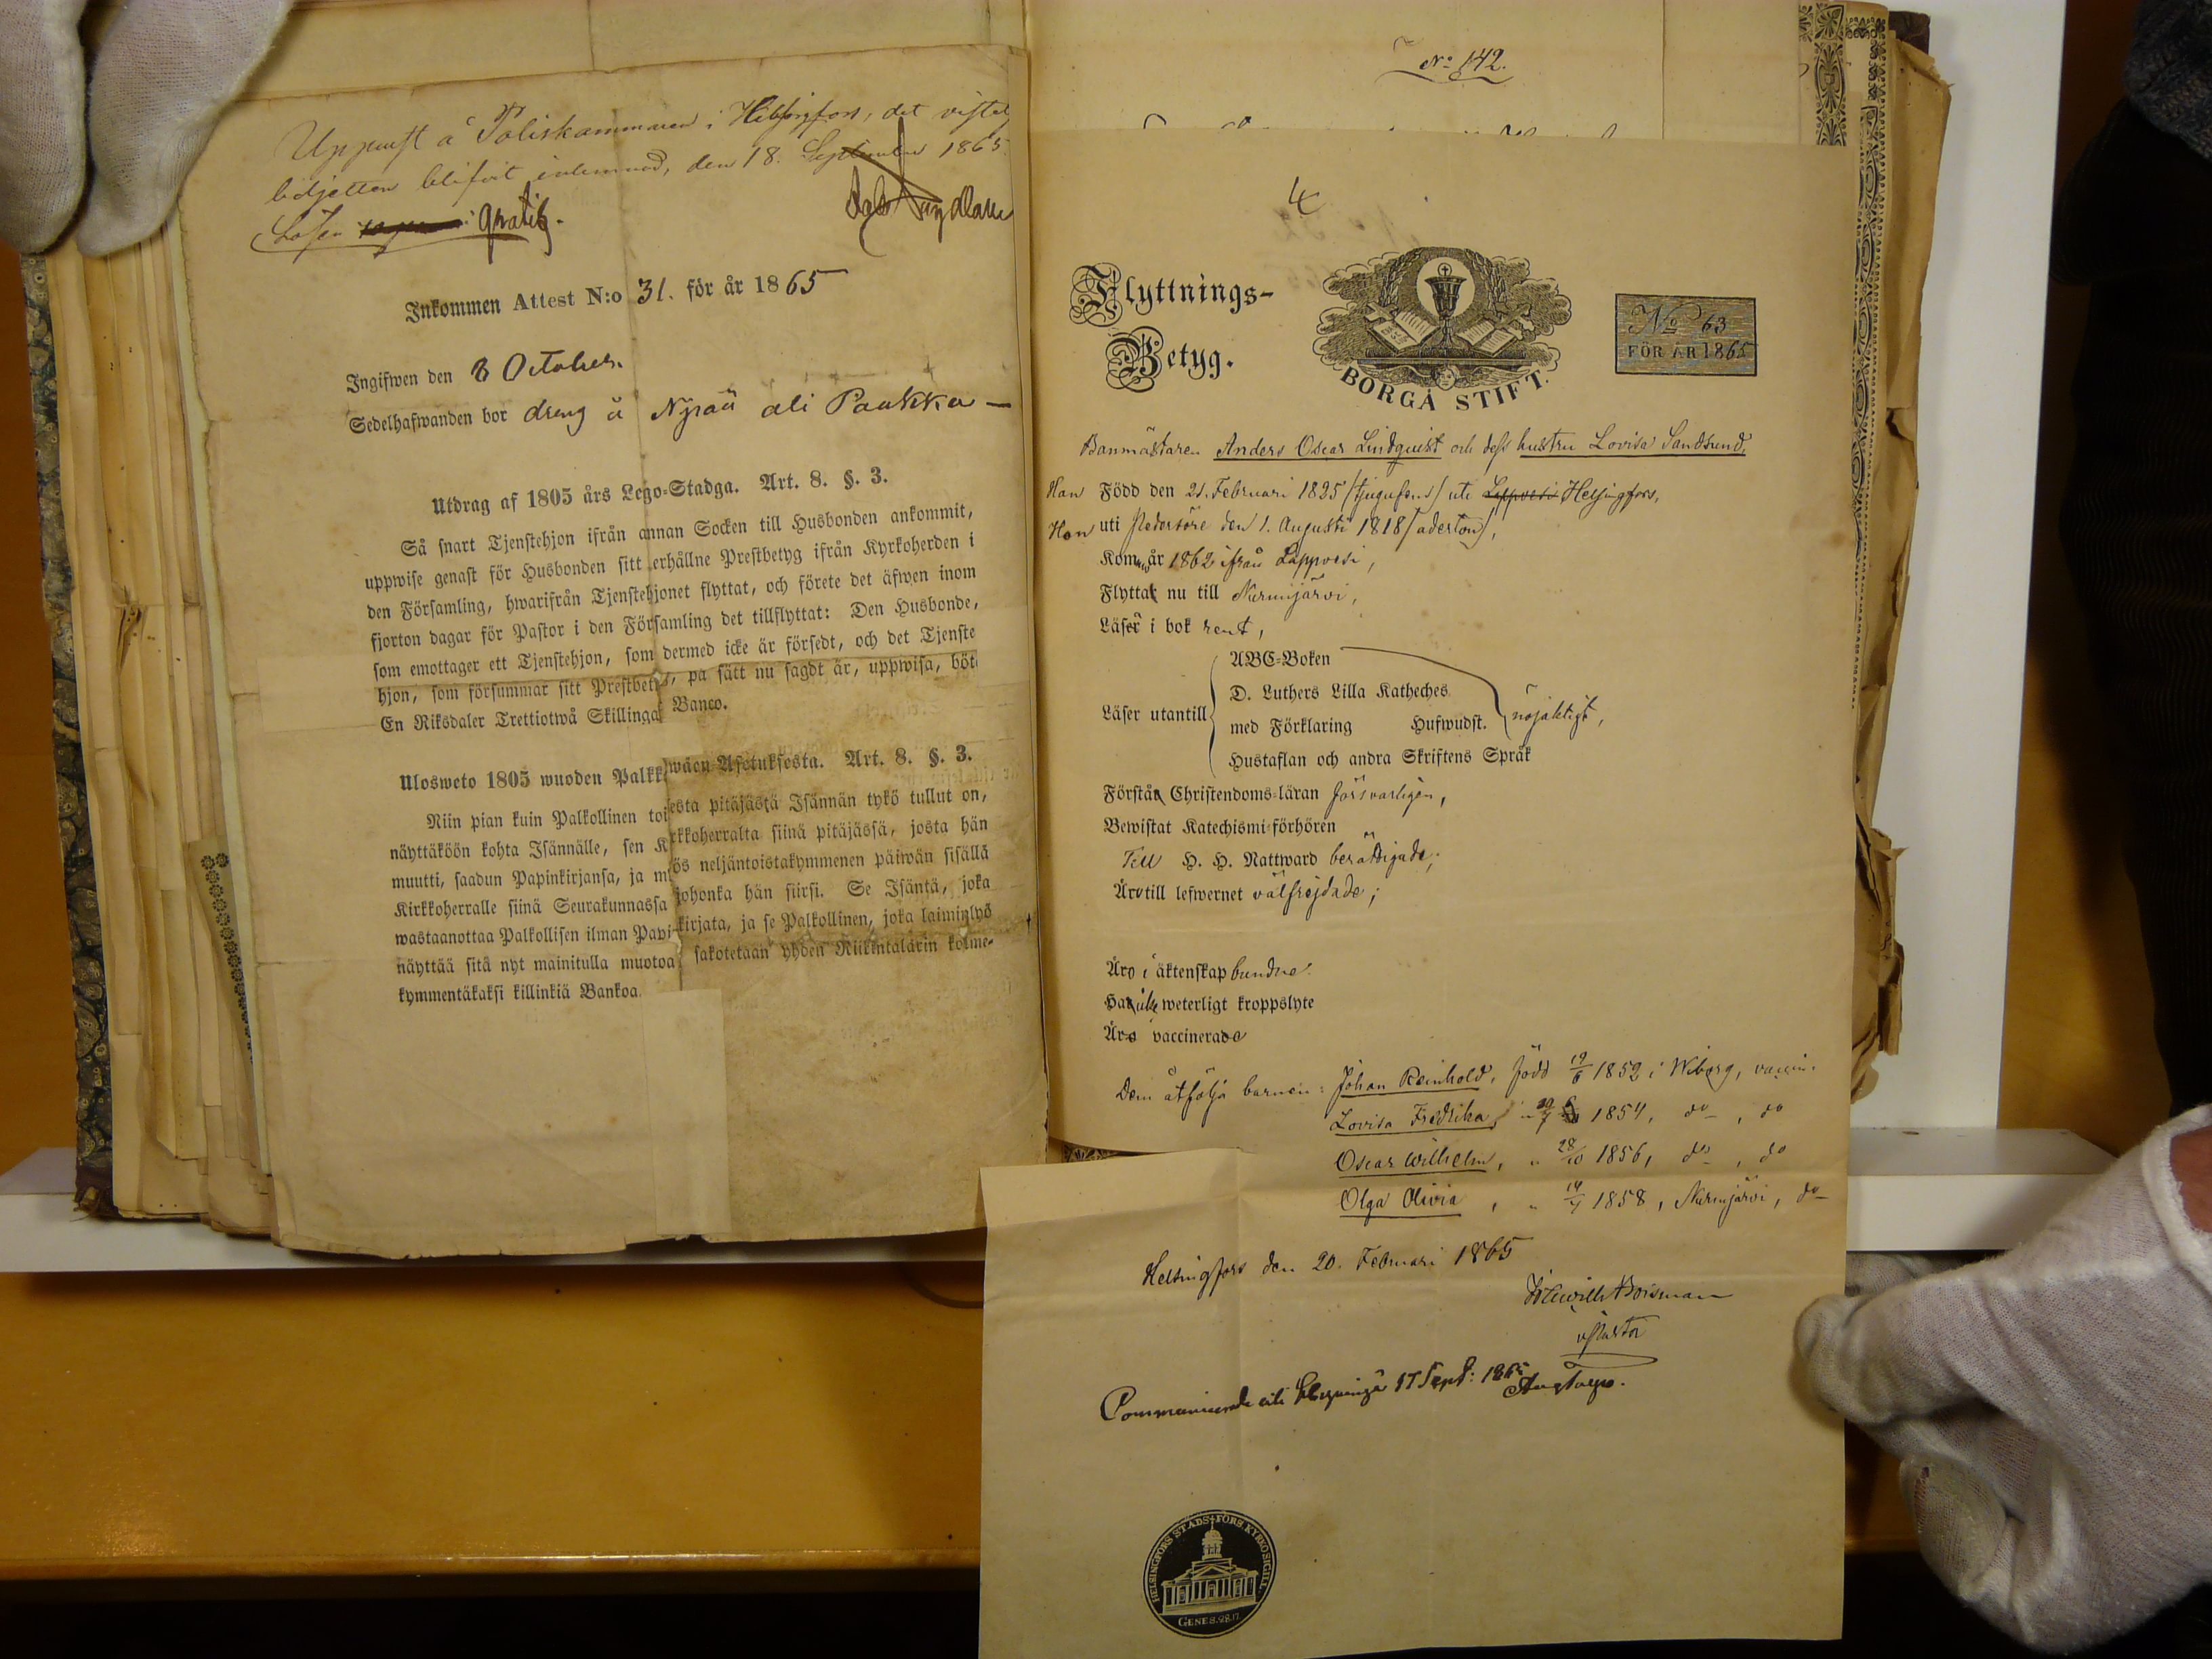 Uppvist å Poliskammaren i Helsingfors, det vistel
bidjetten blifvit inlemnad, den 18. September 1865.
Lösen gratis.
Inkommen Attest N:o 31. för år 1865
Ingifwen den 8 October.
Sedelhafwanden bor dreng å Nyraü ali Paukku —
Utdrag af 1805 års Lego-Stadga. Art. 8. §. 3.
Så snart Tjenstehjon ifrån annan Socken till Husbonden ankommit,
uppwise genast för Husbonden sitt erhållne Prestbetyg ifrån Kyrkoherden i
den Församling, hwarifrån Tjenstehjonet flyttat, och förete det äfwen inom
fjorton dagar för Pastor i den Församling det tillflyttat: Den Husbonde,
som emottager ett Tjenstehjon, som dermed icke är försedt, och det Tjenste
hjon, som försummar sitt Prestbety, på sätt nu sagdt är, uppwisa, böt
En Riksdaler Trettiotwå Skillingar Banco.
Ulosweto 1805 wuoden Palkkawäen Asetuksesta. Art. 8. §. 3.
Niin pian kuin Palkollinen toisesta pitäjästä Isännän tykö tullut on,
näyttäköön kohta Isännälle, sen Kirkkoherralta siinä pitäjässä, josta hän
muutti, saadun Papinkirjansa, ja myös neljäntoistakymmenen päiwän sisällä
Kirkkoherralle siinä Seurakunnassa johonka hän siirsi. Se Isäntä, joka
wastaanottaa Palkollisen ilman Papinkirjata, ja se Palkollinen, joka laiminlyö
näyttää sitä nyt mainitulla muotoa, sakotetaan yhden Riikintalarin kolme-
kymmentäkaksi killinkiä Bankoa.
No 142.
4
Flyttnings-
Betyg.
BORGÅ STIFT.
No 63
FÖR ÅR 1865
Banmästaren Anders Oscar Lindquist och dess hustru Lovisa Sandsund,
Han Född den 21. Februari 1825 /tjugufem/ uti Lappvesi Helsingfors,
Hon uti Pedersöre den 1. Augusti 1818 /aderton/,
Kommo år 1862 ifrån Lappvesi,
Flytta nu till Nurmijärvi,
Läser i bok rent,
ABC-Boken
D. Luthers Lilla Katheches.
Läser utantill med Förklaring Hufwudst. nöjaktigt,
Hustaflan och andra Skriftens Språk
Förstå Christendoms-läran försvarligen,
Bewistat Katechismi-förhören
Till H. H. Nattward berättigade;
Äro till lefwernet välfrejdade;
Äro i äktenskap bundne.
Ha icke weterligt kroppslyte
Äro vaccinerade
Dem åtfölja barnen: Johan Reinhold, född 19/6 1852 i Wiborg, vaccin.
Lovisa Fredrika, " 1854, do, do
Oscar Wilhelm, " 28/10 1856, do, do
Olga Olivia, " 14/4 1858, Nurmijärvi, do
Helsingfors den 20. Februari 1865
v Pastor
Communicerade uti 17 Sept: 1865
HELSINGFORS STADS FÖRS. KYRKOSIGILL.
GENES. 28.17